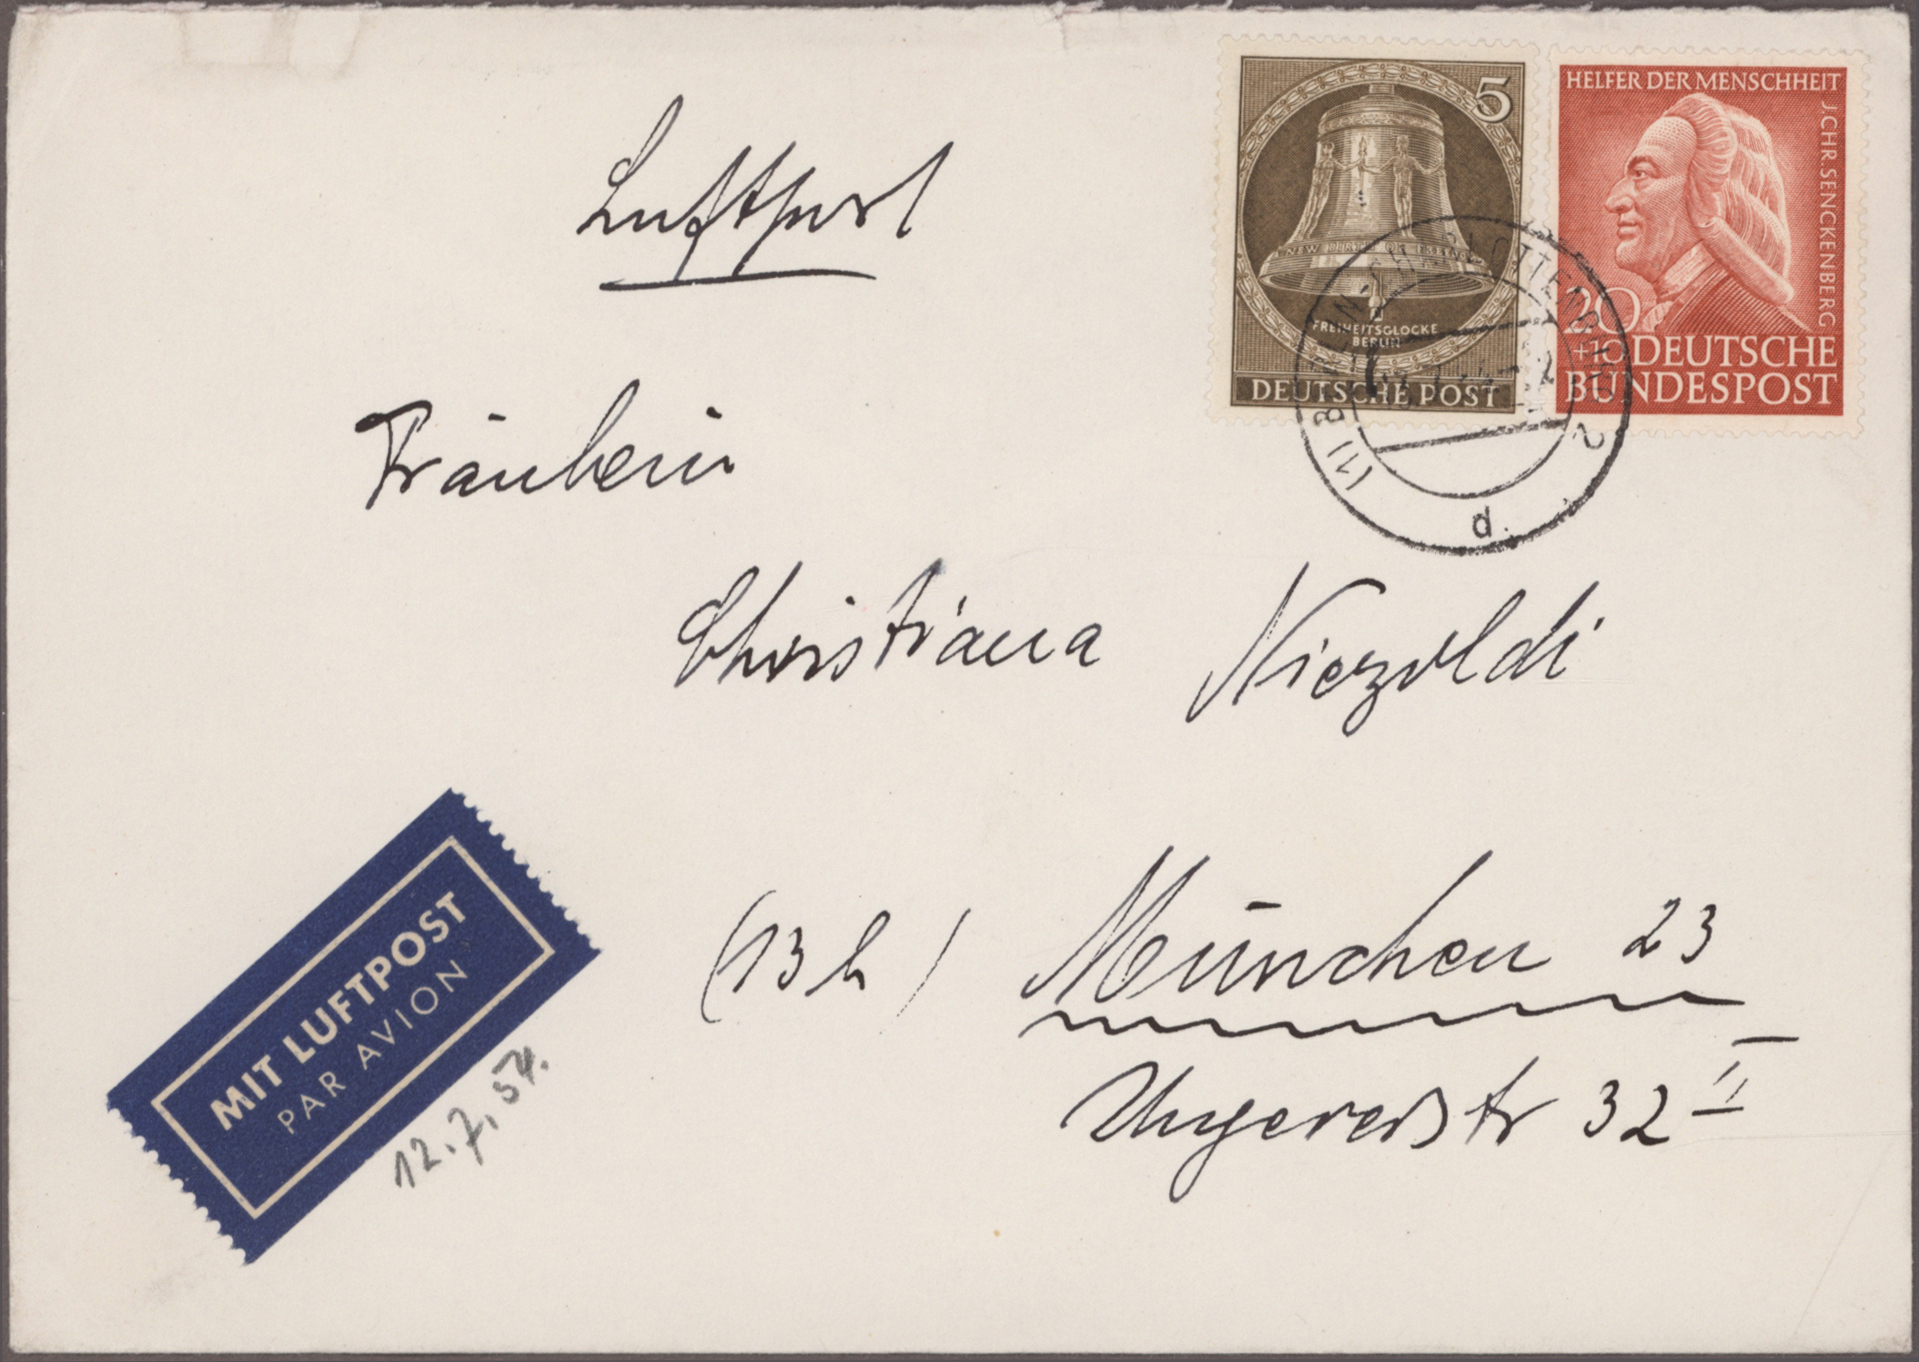 Luftpost
5
NEW BIRTH OF
FREIHEITSGLOCKE
BERLIN
DEUTSCHE POST
HELFER DER MENSCHHEIT
J.CHR.SENCKENBERG
20
+10 DEUTSCHE
BUNDESPOST
(1) BERLIN-CHARLOTTENBURG 2
d
Fräulein
Christiana Niezoldi
(13b) München 23
Ungererstr 32 II
MIT LUFTPOST
PAR AVION
12.7.54.